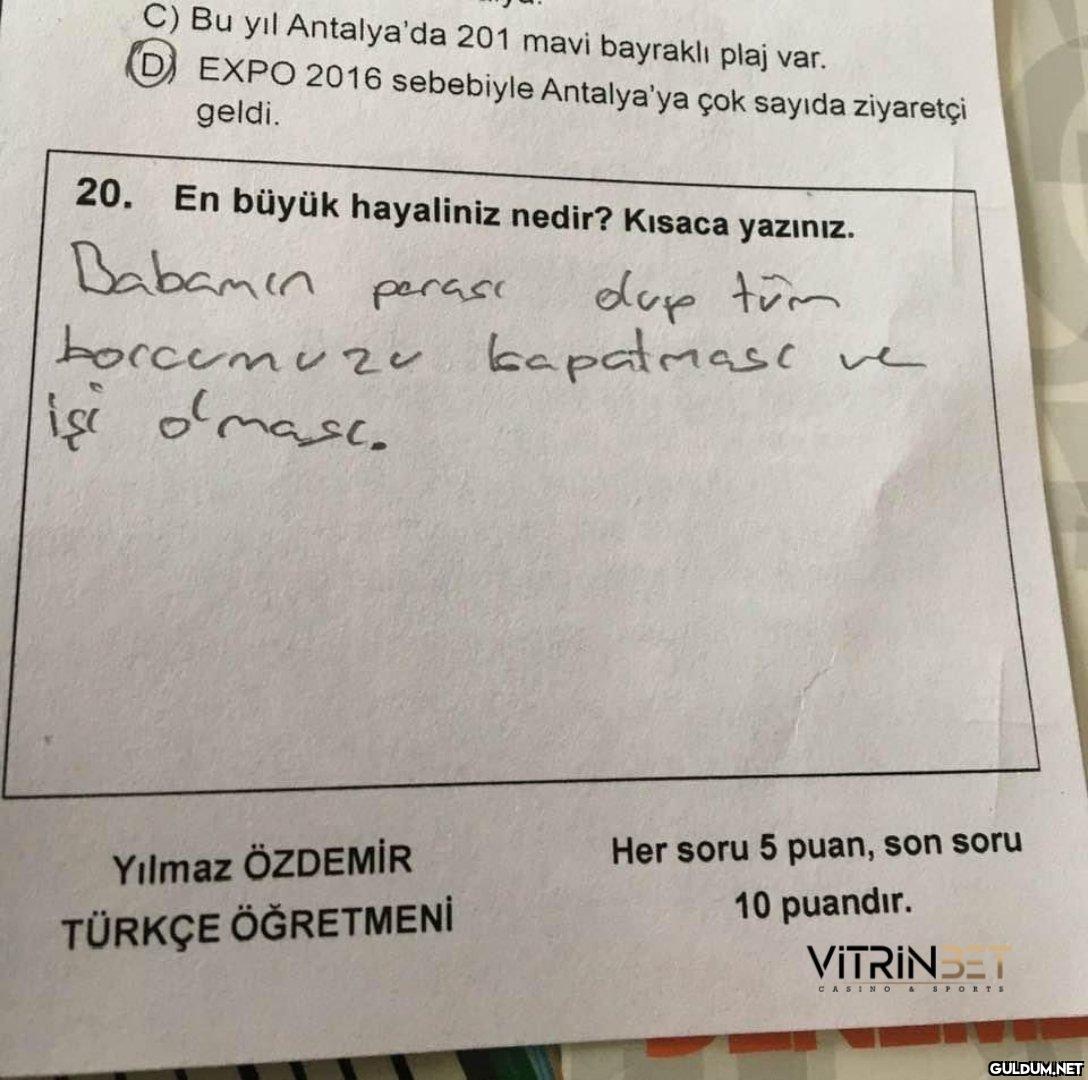 C) Bu yıl Antalya'da 201 mavi bayraklı plaj var.
D) EXPO 2016 sebebiyle Antalya'ya çok sayıda ziyaretçi
geldi.
20. En büyük hayaliniz nedir? Kısaca yazınız.
Babamın parası olup tüm
borcumuzu kapatması ve
işi olması.
Yılmaz ÖZDEMİR
TÜRKÇE ÖĞRETMENİ
Her soru 5 puan, son soru
10 puandır.
VİTRİNBET
CASINO & SPORTS
GULDUM.NET